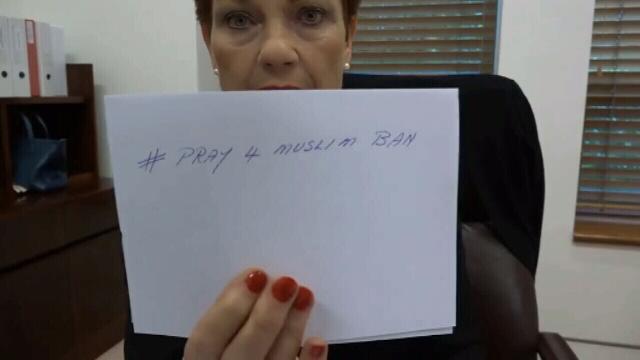 # PRAY 4 MUSLIM BAN